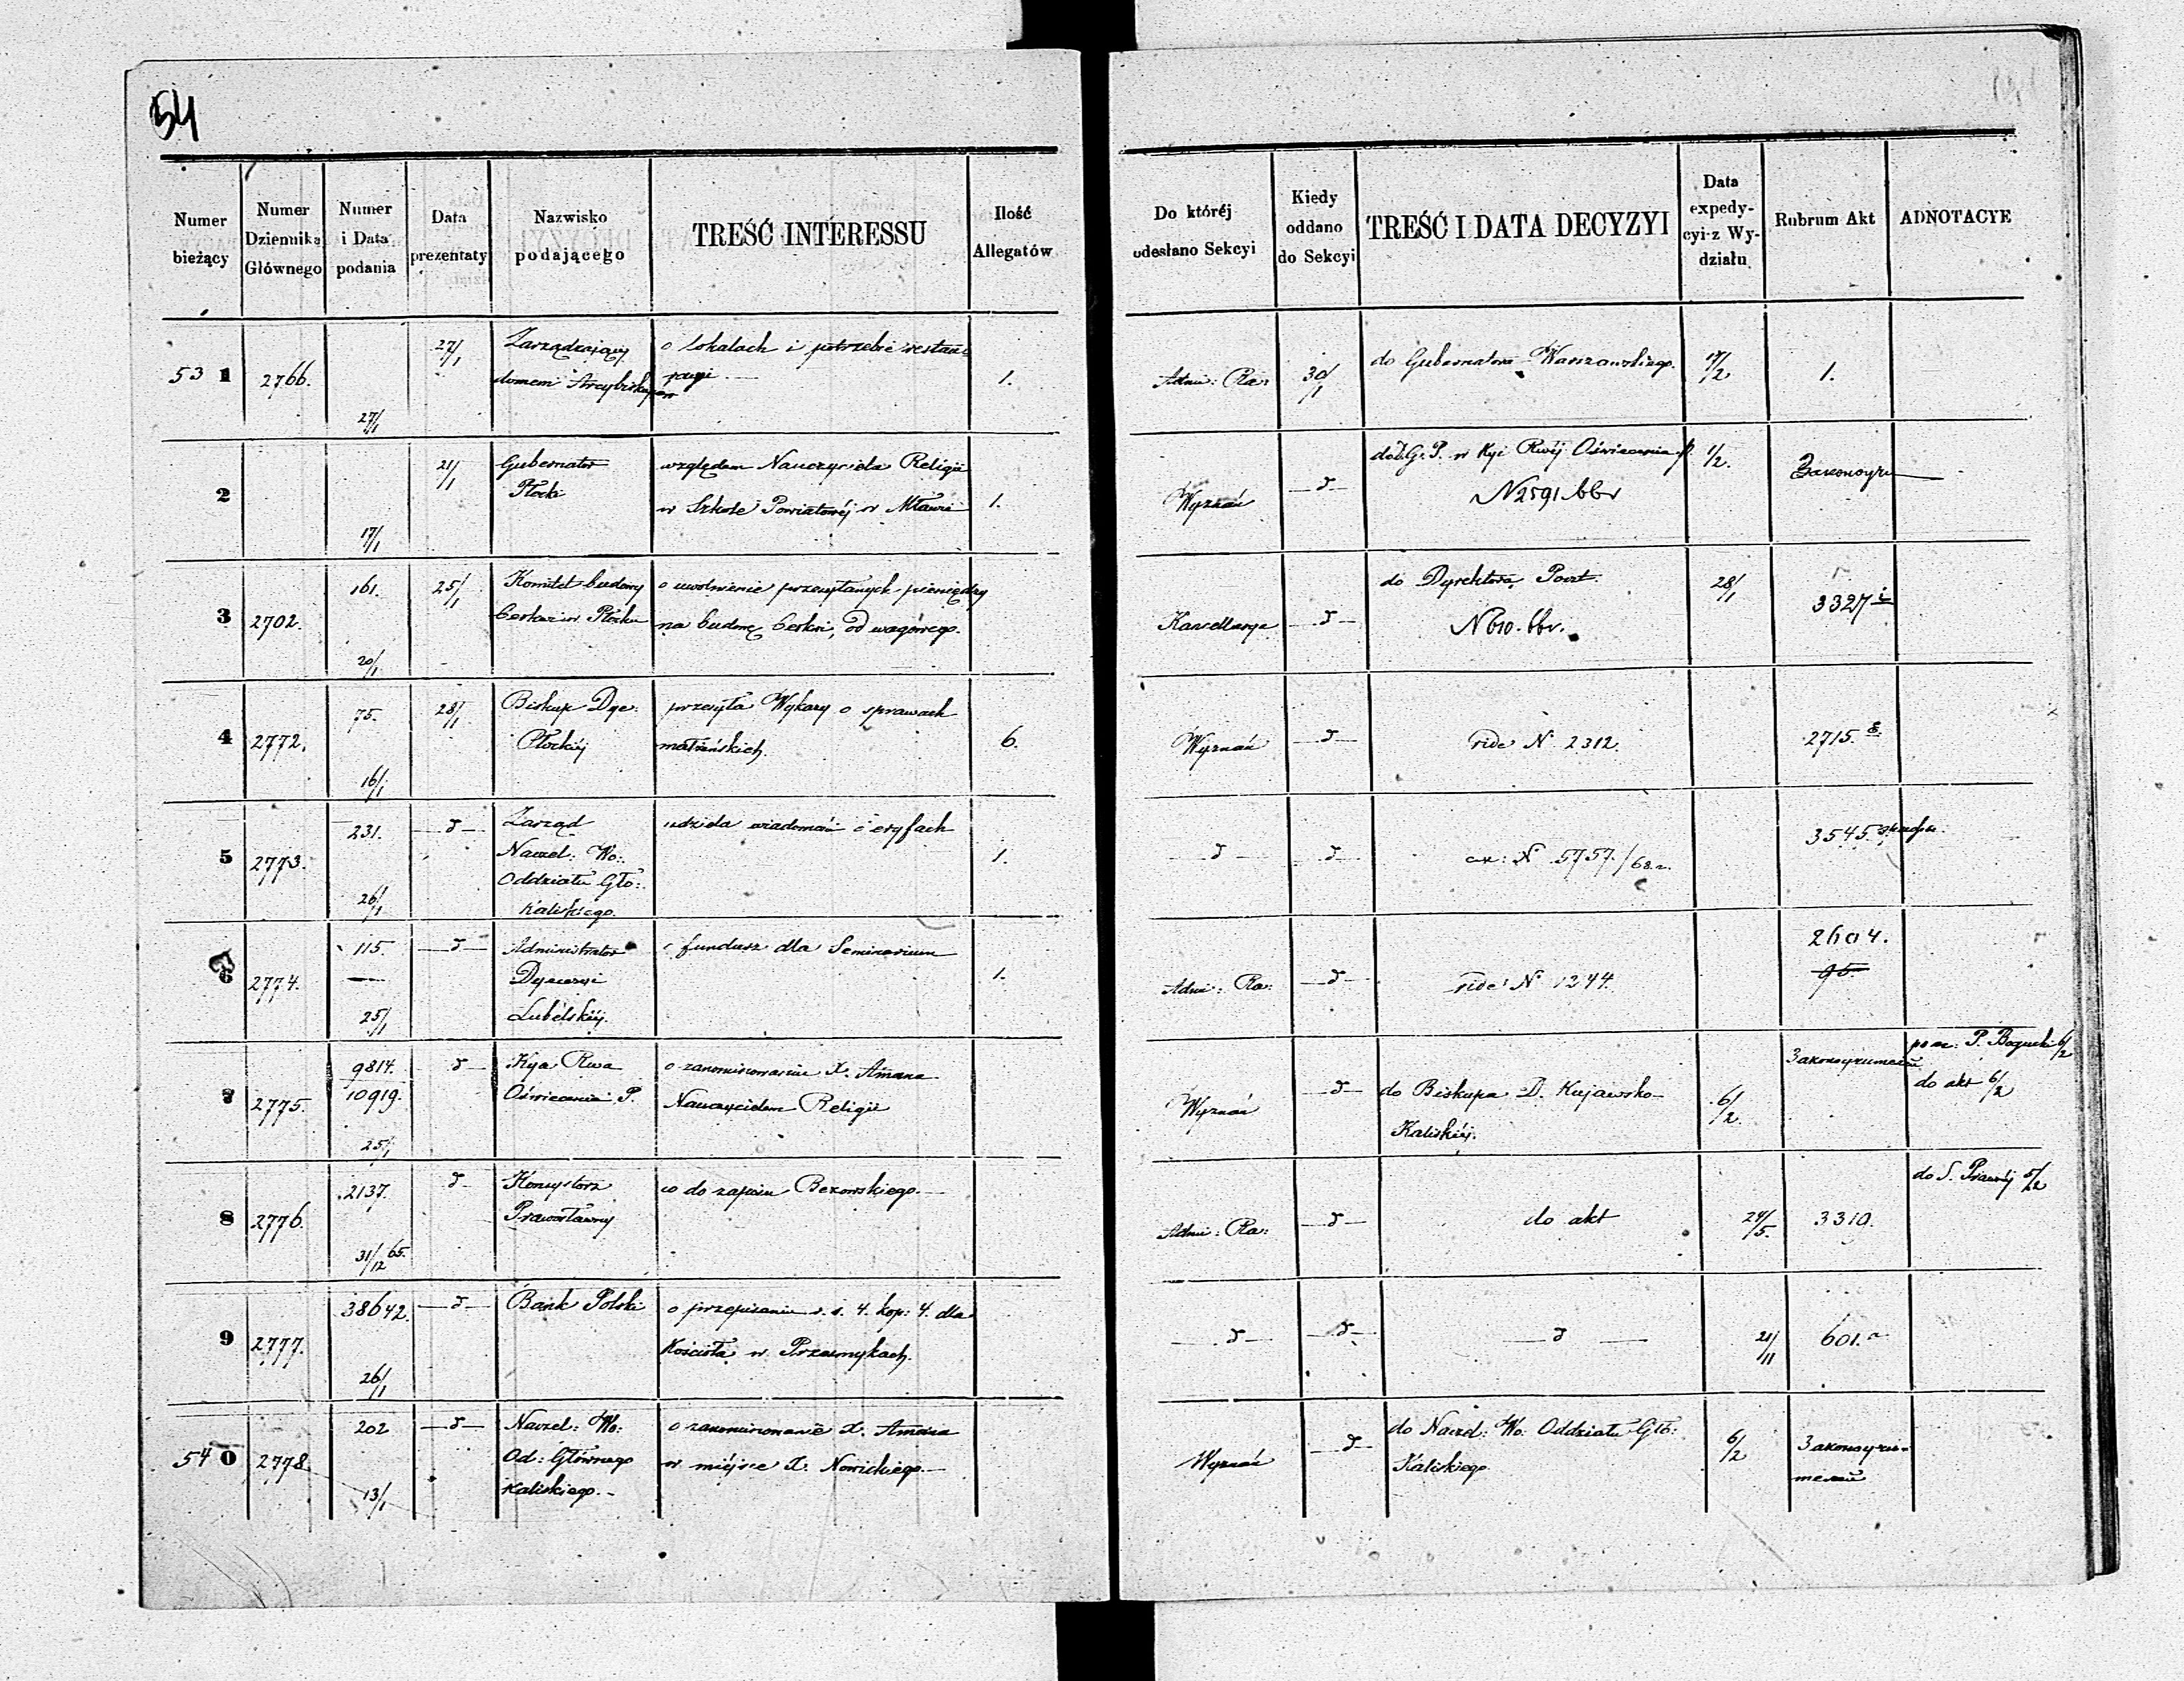 54
Numer bieżący
Numer Dziennika Głównego
Numer i Data podania
Data prezentaty
Nazwisko podającego
TREŚĆ INTERESSU
Ilość Allegatów
Do któréj odesłano Sekcyi
Kiedy oddano do Sekcyi
TREŚĆ I DATA DECYZYI
Data expedy-cyi z Wy-działu
Rubrum Akt
ADNOTACYE
53 1
2766.
27/1
27/1
Zarządzający
domem Arcybiskupów
o lokalach i potrzebie restau
racyi
1.
Admi: Ra:
30/1
do Gubernatora Warszawskiego.
17/2
1.
2
17/1
21/1
Gubernator
Płocki
względem Nauczyciela Religii
w Szkole Powiatowéj w Mławie
1.
Wyznań
d
do D. G. P. w Kyi Rwéj Oświecenia p.
N 2591
1/2.
3
2702.
161.
20/1
25/1
Komitet budowy
Cerkwi w Płocku
o uwolnienie przesyłanych pieniędzy
na budowę Cerkwi, od wagowego.
Kancellarya
d
do Dyrektora Poczt.
N 610.
28/1
3327
4
2772.
75.
16/1
28/1
Biskup Dye:
Płockiéj
przesyła Wykazy o sprawach
małżeńskich.
6.
Wyznań
d
vide N 2312.
2715.
5
2773.
231.
26/1
d
Zarząd
Naczel: Wo:
Oddziału Głó:
Kaliskiego.
udziela wiadomość o
1.
d
d
N 5757/68
3545.
6
2774.
115.
25/1
d
Administrator
Dyecezyi
Lubelskiéj.
o fundusz dla Seminarium
1.
Admi: Ra:
d
vide N 1244.
2604.
95.
7
2775.
9814.
10919.
25/1
d
Kya Rwa
Oświecenia P.
o zanominowaniu X. Amana
Nauczycielem Religii
Wyznań
d
do Biskupa D. Kujawsko-
Kaliskiéj.
6/2.
P. Bogucki 6/2
do akt 6/2
8
2776.
2137.
31/12 65.
d
Konsystorz
Prawosławny
co do zapisu Bezowskiego.
Admi: Ra:
d
do akt
24/5.
3319.
do S. Prawnéj 5/2
9
2777.
38642.
26/1
d
Bank Polski
o przepisanie r. s. 4. kop: 4. dla
Kościoła w Przesmykach.
d
d
d
21/11
601.
54 0
2778
202
13/1
d
Naczel: Wo:
Od: Głównego
Kaliskiego.
o zanominowanie X. Amana
w miéjsce X. Nowickiego.
Wyznań
d
do Naczel: Wo: Oddziału Głó:
Kaliskiego
6/2